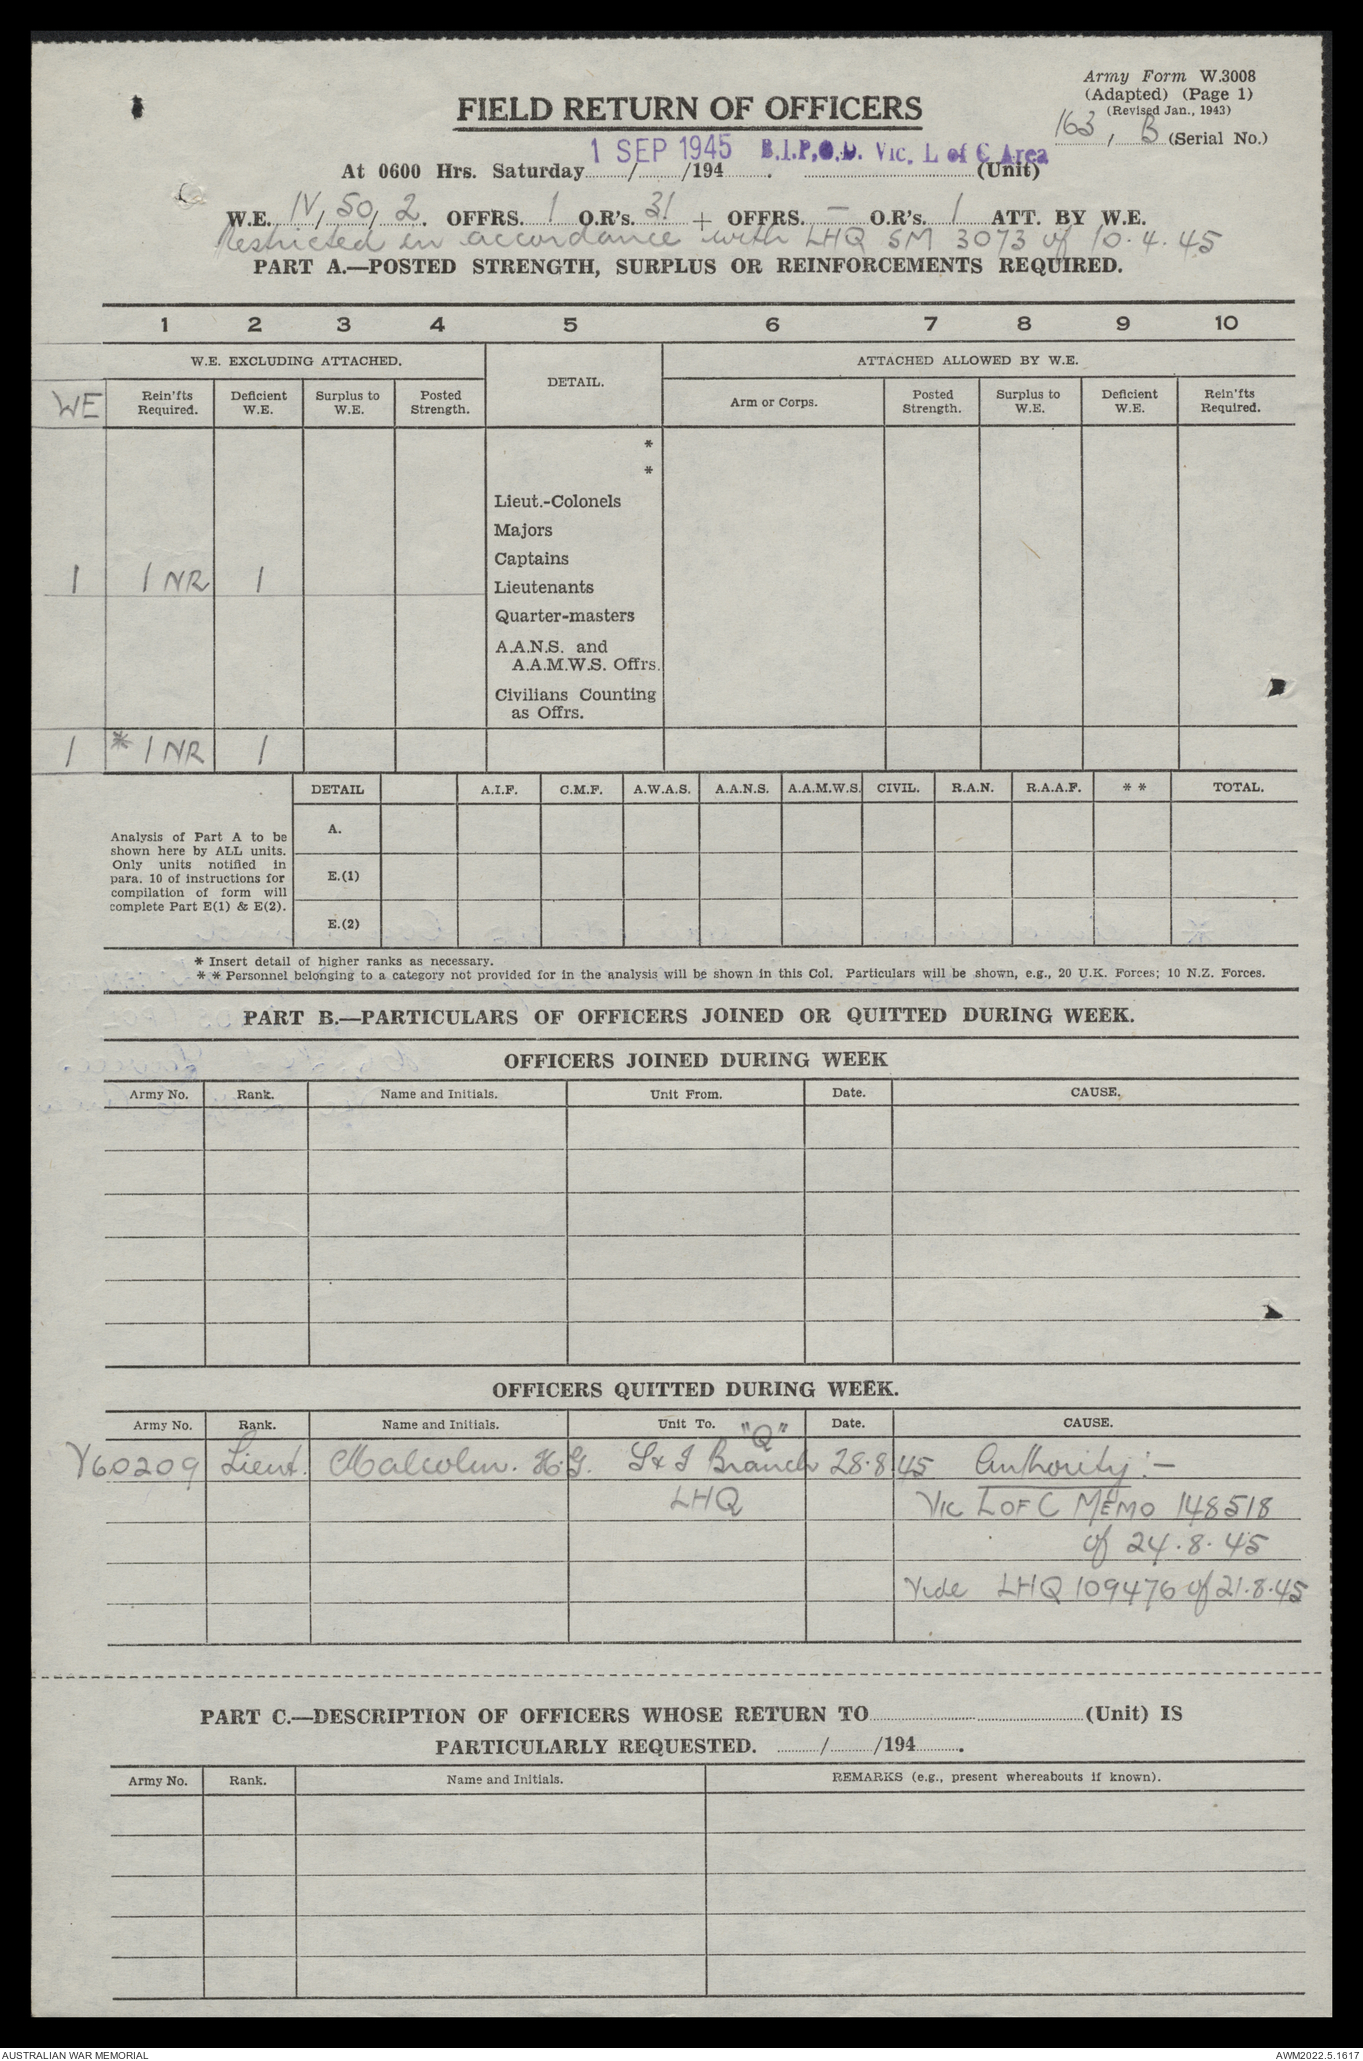 Army Form W.3008
(Adapted) (Page 1)
(Revised Jan., 1943)
163, B (Serial No.)
FIELD RETURN OF OFFICERS
At 0600 Hrs. Saturday 1 SEP 1945 /194 . B.I.P.O.D. Vic. L of C Area (Unit)
W.E. IV/ 50/ 2. OFFRS. 1 O.R's. 31 + OFFRS. — O.R's. 1 ATT. BY W.E.
Restricted in accordance with LHQ SM 3073 of 10.4.45
PART A.—POSTED STRENGTH, SURPLUS OR REINFORCEMENTS REQUIRED.
1 2 3 4 5 6 7 8 9 10
W.E. EXCLUDING ATTACHED. DETAIL. ATTACHED ALLOWED BY W.E.
WE Rein'fts Required. Deficient W.E. Surplus to W.E. Posted Strength. Arm or Corps. Posted Strength. Surplus to W.E. Deficient W.E. Rein'fts Required.
*
*
Lieut.-Colonels
Majors
Captains
1 1 NR 1 Lieutenants
Quarter-masters
A.A.N.S. and
A.A.M.W.S. Offrs.
Civilians Counting
as Offrs.
1 * 1 NR 1
DETAIL A.I.F. C.M.F. A.W.A.S. A.A.N.S. A.A.M.W.S. CIVIL. R.A.N. R.A.A.F. * * TOTAL.
A.
Analysis of Part A to be
shown here by ALL units.
Only units notified in
para. 10 of instructions for
compilation of form will
complete Part E(1) & E(2).
E.(1)
E.(2)
* Insert detail of higher ranks as necessary.
* * Personnel belonging to a category not provided for in the analysis will be shown in this Col. Particulars will be shown, e.g., 20 U.K. Forces; 10 N.Z. Forces.
PART B.—PARTICULARS OF OFFICERS JOINED OR QUITTED DURING WEEK.
OFFICERS JOINED DURING WEEK
Army No. Rank. Name and Initials. Unit From. Date. CAUSE.
OFFICERS QUITTED DURING WEEK.
Army No. Rank. Name and Initials. Unit To. "Q" Date. CAUSE.
V60209 Lieut. Malcolm. H.G. S & T Branch 28.8.45 Authority :—
LHQ VIC L OF C MEMO 148518
of 24.8.45
Vide LHQ 109476 of 21.8.45
PART C.—DESCRIPTION OF OFFICERS WHOSE RETURN TO (Unit) IS
PARTICULARLY REQUESTED. / /194 .
Army No. Rank. Name and Initials. REMARKS (e.g., present whereabouts if known).
AUSTRALIAN WAR MEMORIAL AWM2022.5.1617